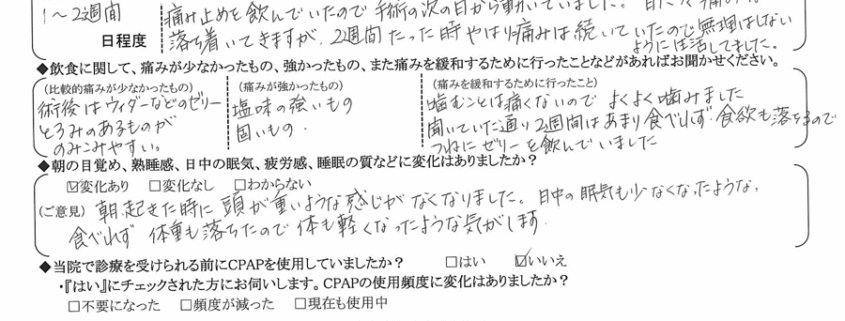 1～2週間
日程度
痛み止めを飲んでいたので手術の次の日から動いていました。
落ち着いてきますが、2週間たった時やはり痛みは続いていたので無理はしない
ように生活してました。
◆飲食に関して、痛みが少なかったもの、強かったもの、また痛みを緩和するために行ったことなどがあればお聞かせください。
(比較的痛みが少なかったもの)
術後はウィダーなどのゼリー
とろみのあるものが
のみこみやすい。
(痛みが強かったもの)
塩味の強いもの
固いもの．
(痛みを緩和するために行ったこと)
噛むことは痛くないので よくよく噛みました
聞いていた通り2週間はあまり食べれず 食欲も落ちるので
つねにゼリーを飲んでいました
◆朝の目覚め、熟睡感、日中の眠気、疲労感、睡眠の質などに変化はありましたか？
☑変化あり □変化なし □わからない
(ご意見) 朝、起きた時に 頭が重いような感じがなくなりました。日中の眠気も少なくなったような。
食べれず 体重も落ちたので 体も軽くなったような気がします．
◆当院で診療を受けられる前にCPAPを使用していましたか？ □はい ☑いいえ
・『はい』にチェックされた方にお伺いします。CPAPの使用頻度に変化はありましたか？
□不要になった □頻度が減った □現在も使用中